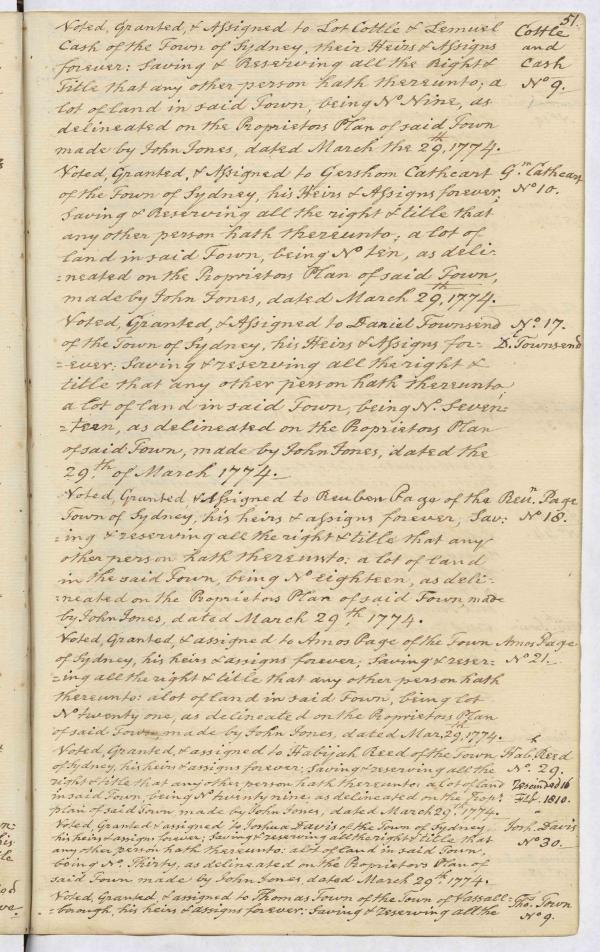 51.
Voted, Granted, & Assigned to Lot Cottle & Lemuel
Cash of the Town of Sydney, their Heirs & Assigns
forever: Saving & Reserving all the Right &
Title that any other person hath thereunto; a
lot of land in said Town, being No. Nine, as
delineated on the Proprietors Plan of said Town
made by John Jones, dated March the 29th, 1774.
Cottle
and
Cash
No 9.
Voted, Granted, & Assigned to Gershom Cathcart
of the Town of Sydney, his Heirs & Assigns forever,
Saving & Reserving all the right & title that
any other person hath thereunto; a lot of
land in said Town, being No ten, as deli-
=neated on the Proprietors Plan of said Town,
made by John Jones, dated March 29th, 1774.
G.m Cathcart
No 10.
Voted, Granted, & Assigned to Daniel Townsend
of the Town of Sydney, his Heirs & Assigns for-
=ever: Saving & reserving all the right &
title that any other person hath thereunto;
a lot of land in said Town, being No. Seven:
=teen, as delineated on the Proprietors Plan
of said Town, made by John Jones, dated the
29th of March 1774.
No. 17.
D. Townsend
Voted, Granted & Assigned to Reuben Page of the
Town of Sydney, his heirs & assigns forever, Sav:
=ing & reserving all the right & title that any
other person hath thereunto: a lot of land
in the said Town, being No eighteen, as deli-
=neated on the Proprietors Plan of said Town, made
by John Jones, dated March 29th, 1774.
Reu.n Page
No 18.
Voted, Granted, & assigned to Amos Page of the Town
of Sydney, his heirs & assigns forever; Saving & reser=
=ing all the right & title that any other person hath
thereunto: a lot of land in said Town, being lot
No twenty one, as delineated on the Proprietors Plan
of said Town made by John Jones, dated Mar. 29th, 1774.
Amos Page
No 21.
Voted, Granted, & assigned to Habijah Reed of the Town
of Sydney, his heirs & assigns forever; Saving & reserving all the
right & title that any other person hath thereunto: a lot of land
in said Town being No twenty nine as delineated on the Pop.rs
plan of said Town made by John Jones, dated March 29th. 1774.
Hab. Reed
No. 29.
rescinded 16
Feb. 1810.
Voted, Granted & assigned to Joshua Davis of the Town of Sydney
his heirs & assigns forever: Saving & reserving all the right & title that
any other person hath thereunto: a lot of land in said Town,
being No. Thirty, as delineated on the Proprietors Plan of
said Town made by John Jones, dated March 29th, 1774.
Josh. Davis
No 30.
Voted, Granted, & assigned to Thomas Town of the Town of Vassall-
=borough, his heirs & assigns forever: Saving & reserving all the
Tho. Town
No 9.